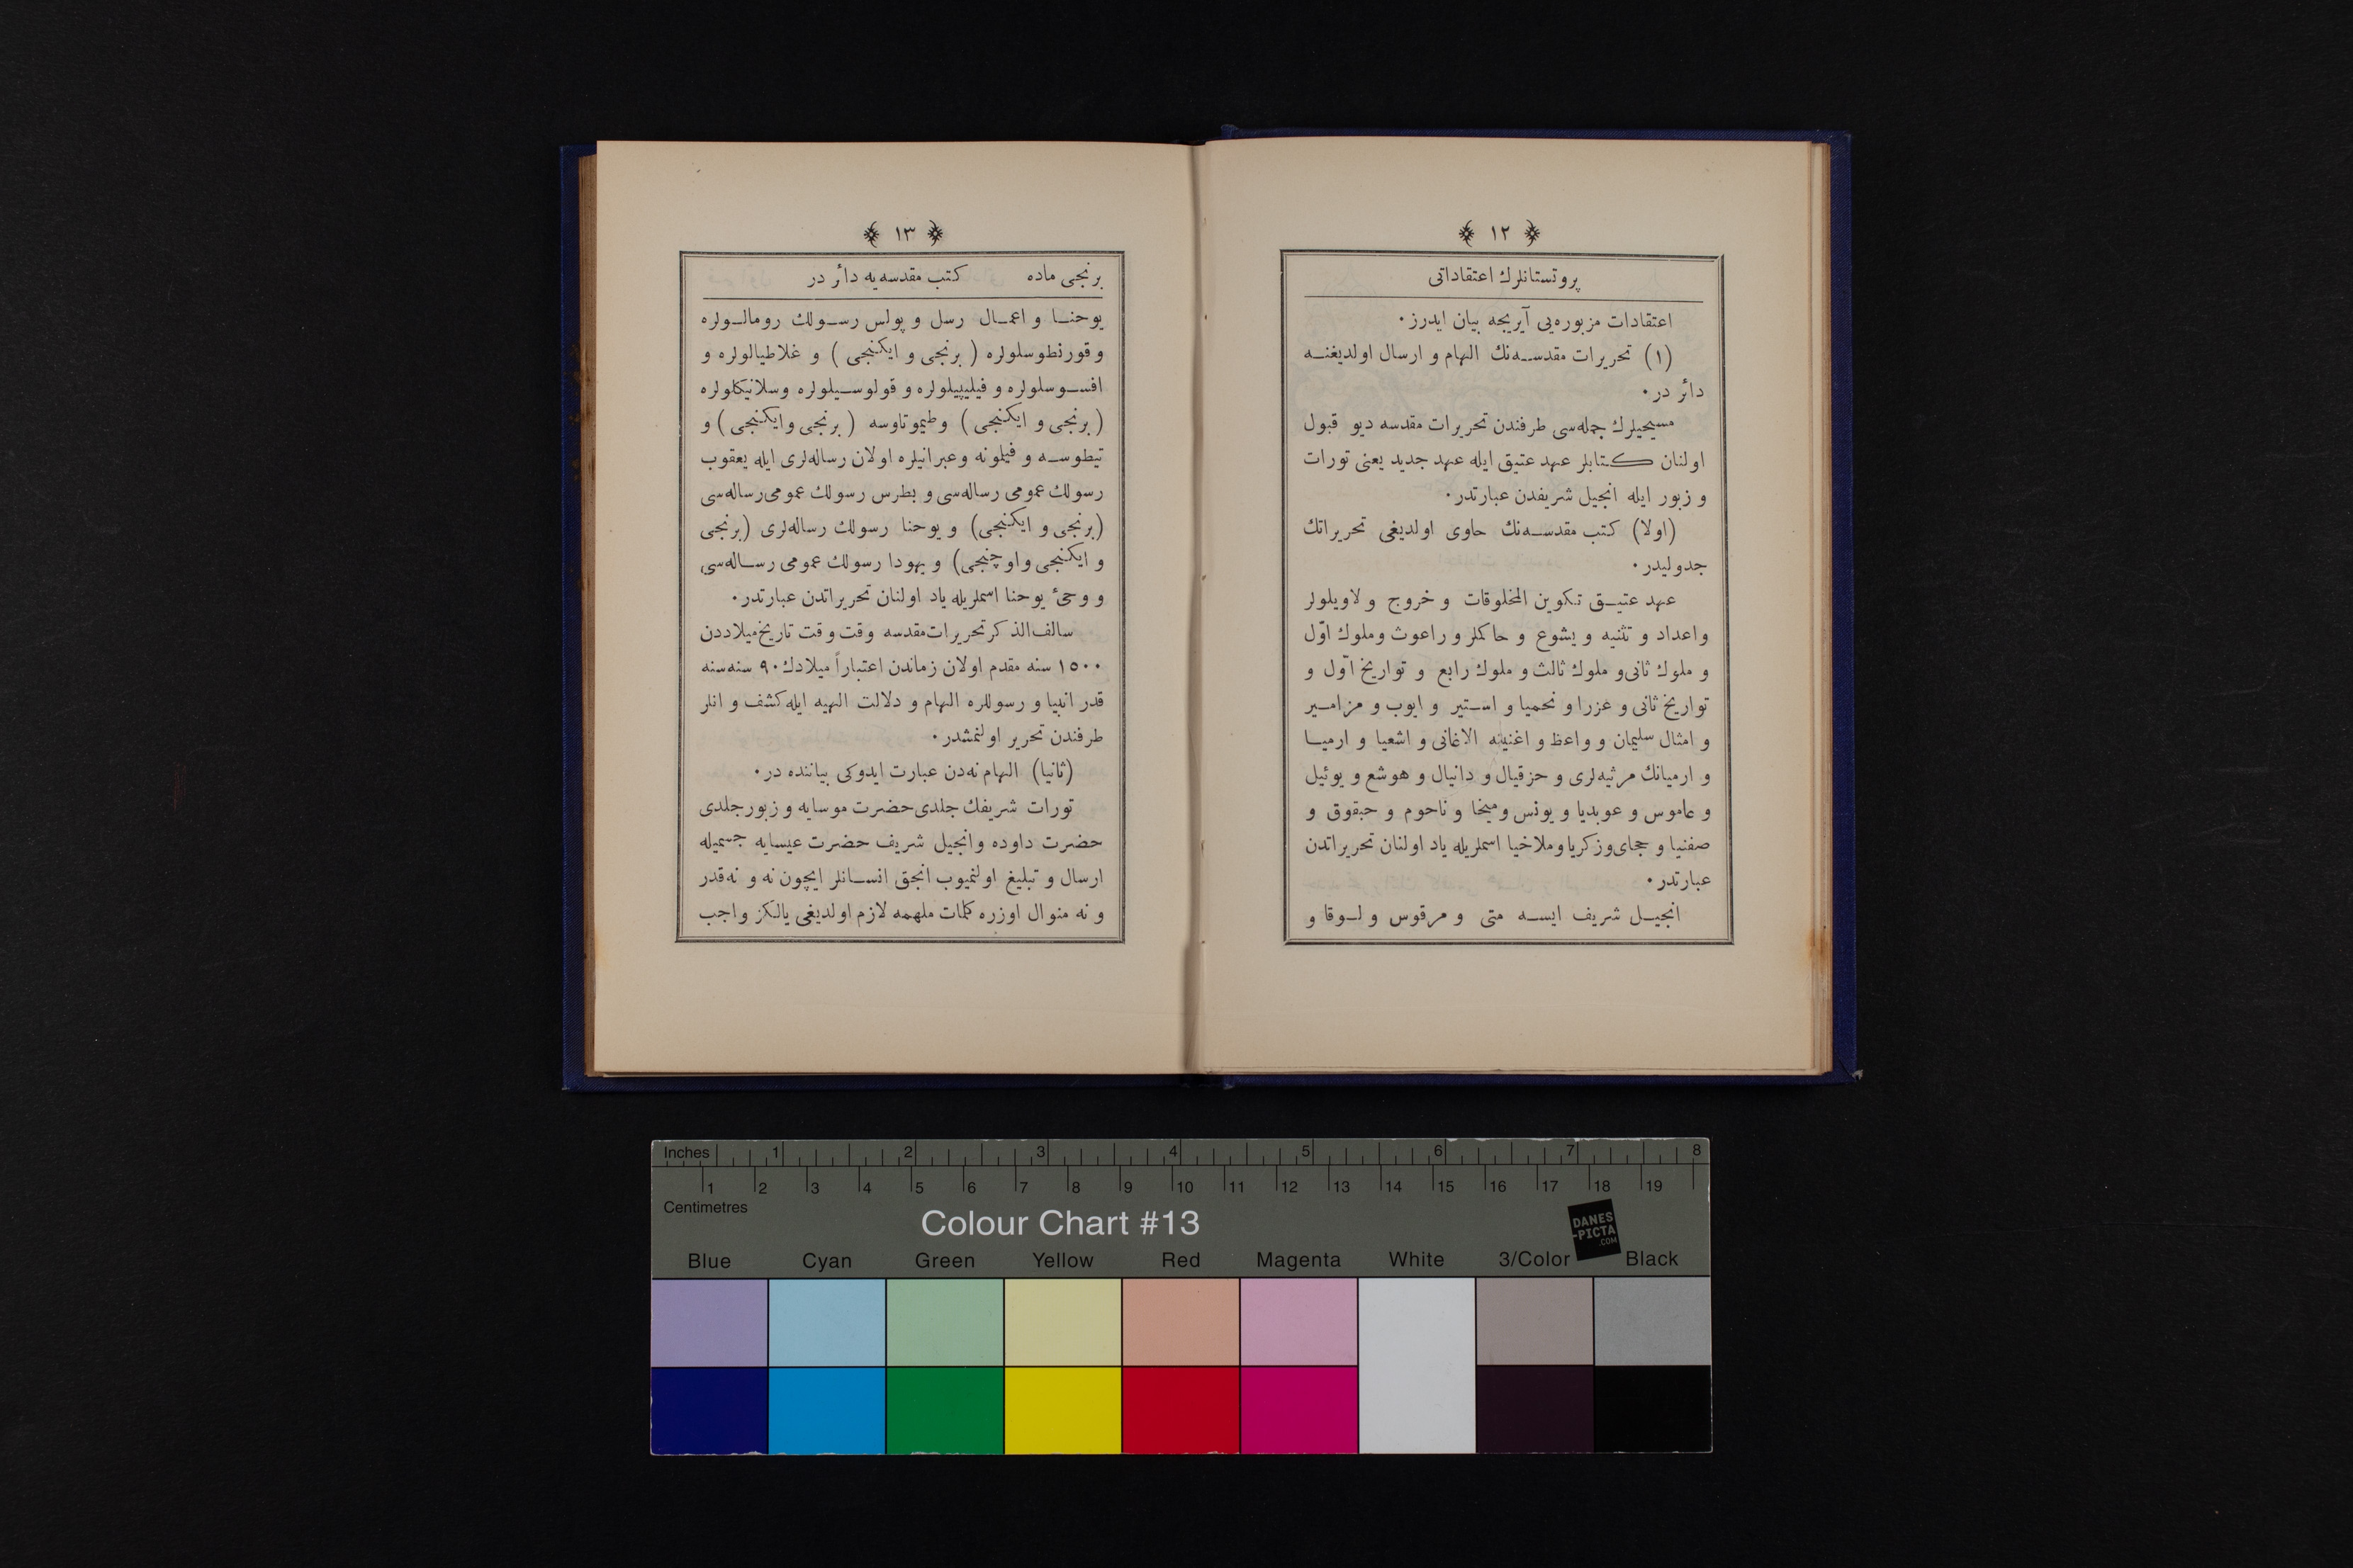 ﴿ ١٢ ﴾
پروتستانلرك اعتقاداتى
اعتقادات مزبوره‌يى آيريجه بيان ايدرز٠
(١) تحريرات مقدسه‌نك الهام و ارسال اولديغنه
دائر در٠
مسيحيلرك جمله‌سى طرفندن تحريرات مقدسه ديو قبول
اولنان كتابلر عهد عتيق ايله عهد جديد يعنى تورات
و زبور ايله انجيل شريفدن عبارتدر٠
(اولا) كتب مقدسه‌نك حاوى اولديغى تحريراتك
جدوليدر٠
عهد عتيق تكوين المخلوقات و خروج و لاويلولر
واعداد و تثنيه و يشوع و حاكملر و راعوث وملوك اوّل
و ملوك ثانى و ملوك ثالث و ملوك رابع و تواريخ اوّل و
تواريخ ثانى و عزرا و نحميا و استير و ايوب و مزامير
و امثال سليمان و واعظ و اغنية الاغانى و اشعيا و ارميا
و ارميانك مرثيه‌لرى و حزقيال و دانيال و هوشع و يوئيل
و عاموس و عوبديا و يونس و ميخا و ناحوم و حبقوق و
صفنيا و حجاى وزكريا و ملاخيا اسملريله ياد اولنان تحريراتدن
عبارتدر٠
انجيل شريف ايسه متى و مرقوس و لوقا و
﴿ ١٣ ﴾
برنجى ماده كتب مقدسه‌يه دائر در
يوحنا و اعمال رسل و پولس رسولك رومالولره
و قورنطوسلولره ( برنجى و ايكنجى ) و غلاطيالولره و
افسوسلولره و فيليپيلولره و قولوسيلولره وسلانيكلولره
( برنجى و ايكنجى ) وطيموتاوسه ( برنجى وايكنجى ) و
تيطوسه و فيلمونه وعبرانيلره اولان رساله‌لرى ايله يعقوب
رسولك عمومى رساله‌سى و بطرس رسولك عمومى رساله‌سى
(برنجى و ايكنجى) و يوحنا رسولك رساله‌لرى (برنجى
و ايكنجى واوچنجى) و يهودا رسولك عمومى رساله‌سى
و وحىٔ يوحنا اسملريله ياد اولنان تحريراتدن عبارتدر٠
سالف‌الذكر تحريرات مقدسه وقت وقت تاريخ ميلاددن
١٥٠٠ سنه مقدم اولان زماندن اعتباراً ميلادك ٩٠ سنه‌سنه
قدر انبيا و رسوللره الهام و دلالت الهيه ايله كشف و انلر
طرفندن تحرير اولنمشدر٠
(ثانيا) الهام نه‌دن عبارت ايدوكى بياننده در٠
تورات شريفك جلدى حضرت موسايه و زبور جلدى
حضرت داوده وانجيل شريف حضرت عيسايه جسميله
ارسال و تبليغ اولنميوب انجق انسانلر ايچون نه و نه‌قدر
و نه منوال اوزره كلمات ملهمه لازم اولديغى يالكز واجب
Inches 1 2 3 4 5 6 7 8
1 2 3 4 5 6 7 8 9 10 11 12 13 14 15 16 17 18 19
Centimetres
Colour Chart #13
DANES
-PICTA
.COM
Blue Cyan Green Yellow Red Magenta White 3/Color Black